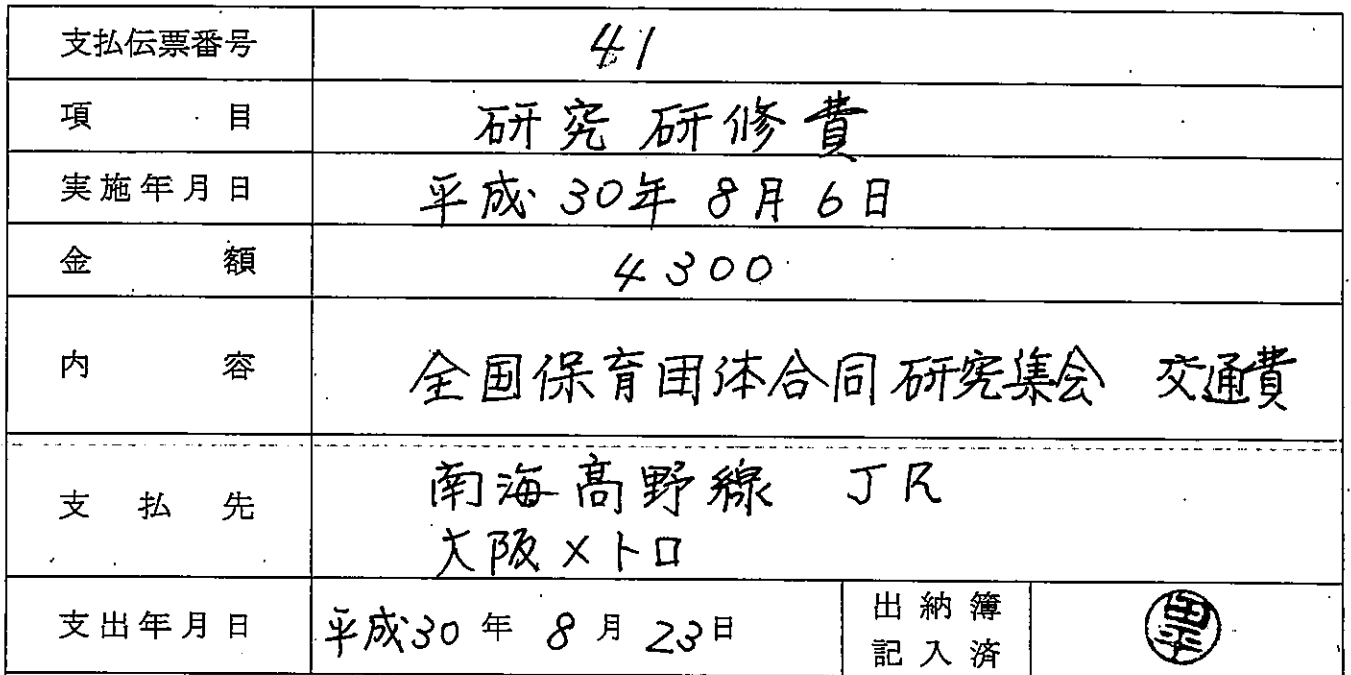 支払伝票番号 41
項目 研究研修費
実施年月日 平成30年8月6日
金額 4300
内容 全国保育団体合同研究集会 交通費
支払先 南海高野線 JR
大阪メトロ
支出年月日 平成30年8月23日 出納簿
記入済